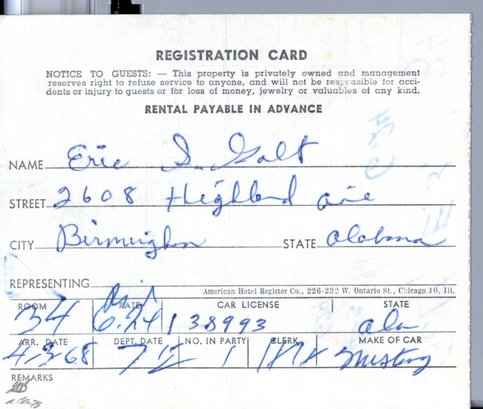 REGISTRATION CARD
NOTICE TO GUESTS: — This property is privately owned and management
reserves right to refuse service to anyone, and will not be responsible for acci-
dents or injury to guests or for loss of money, jewelry or valuables of any kind.
RENTAL PAYABLE IN ADVANCE
NAME Eric S. Galt
STREET 2608 Highland ave
CITY Birmingham STATE Alabama
REPRESENTING
American Hotel Register Co., 226-232 W. Ontario St., Chicago 10, Ill.
ROOM RATE CAR LICENSE STATE
34 6.24 1 38993 ala
ARR. DATE DEPT. DATE NO. IN PARTY CLERK MAKE OF CAR
4-3-68 1 Mustang
REMARKS